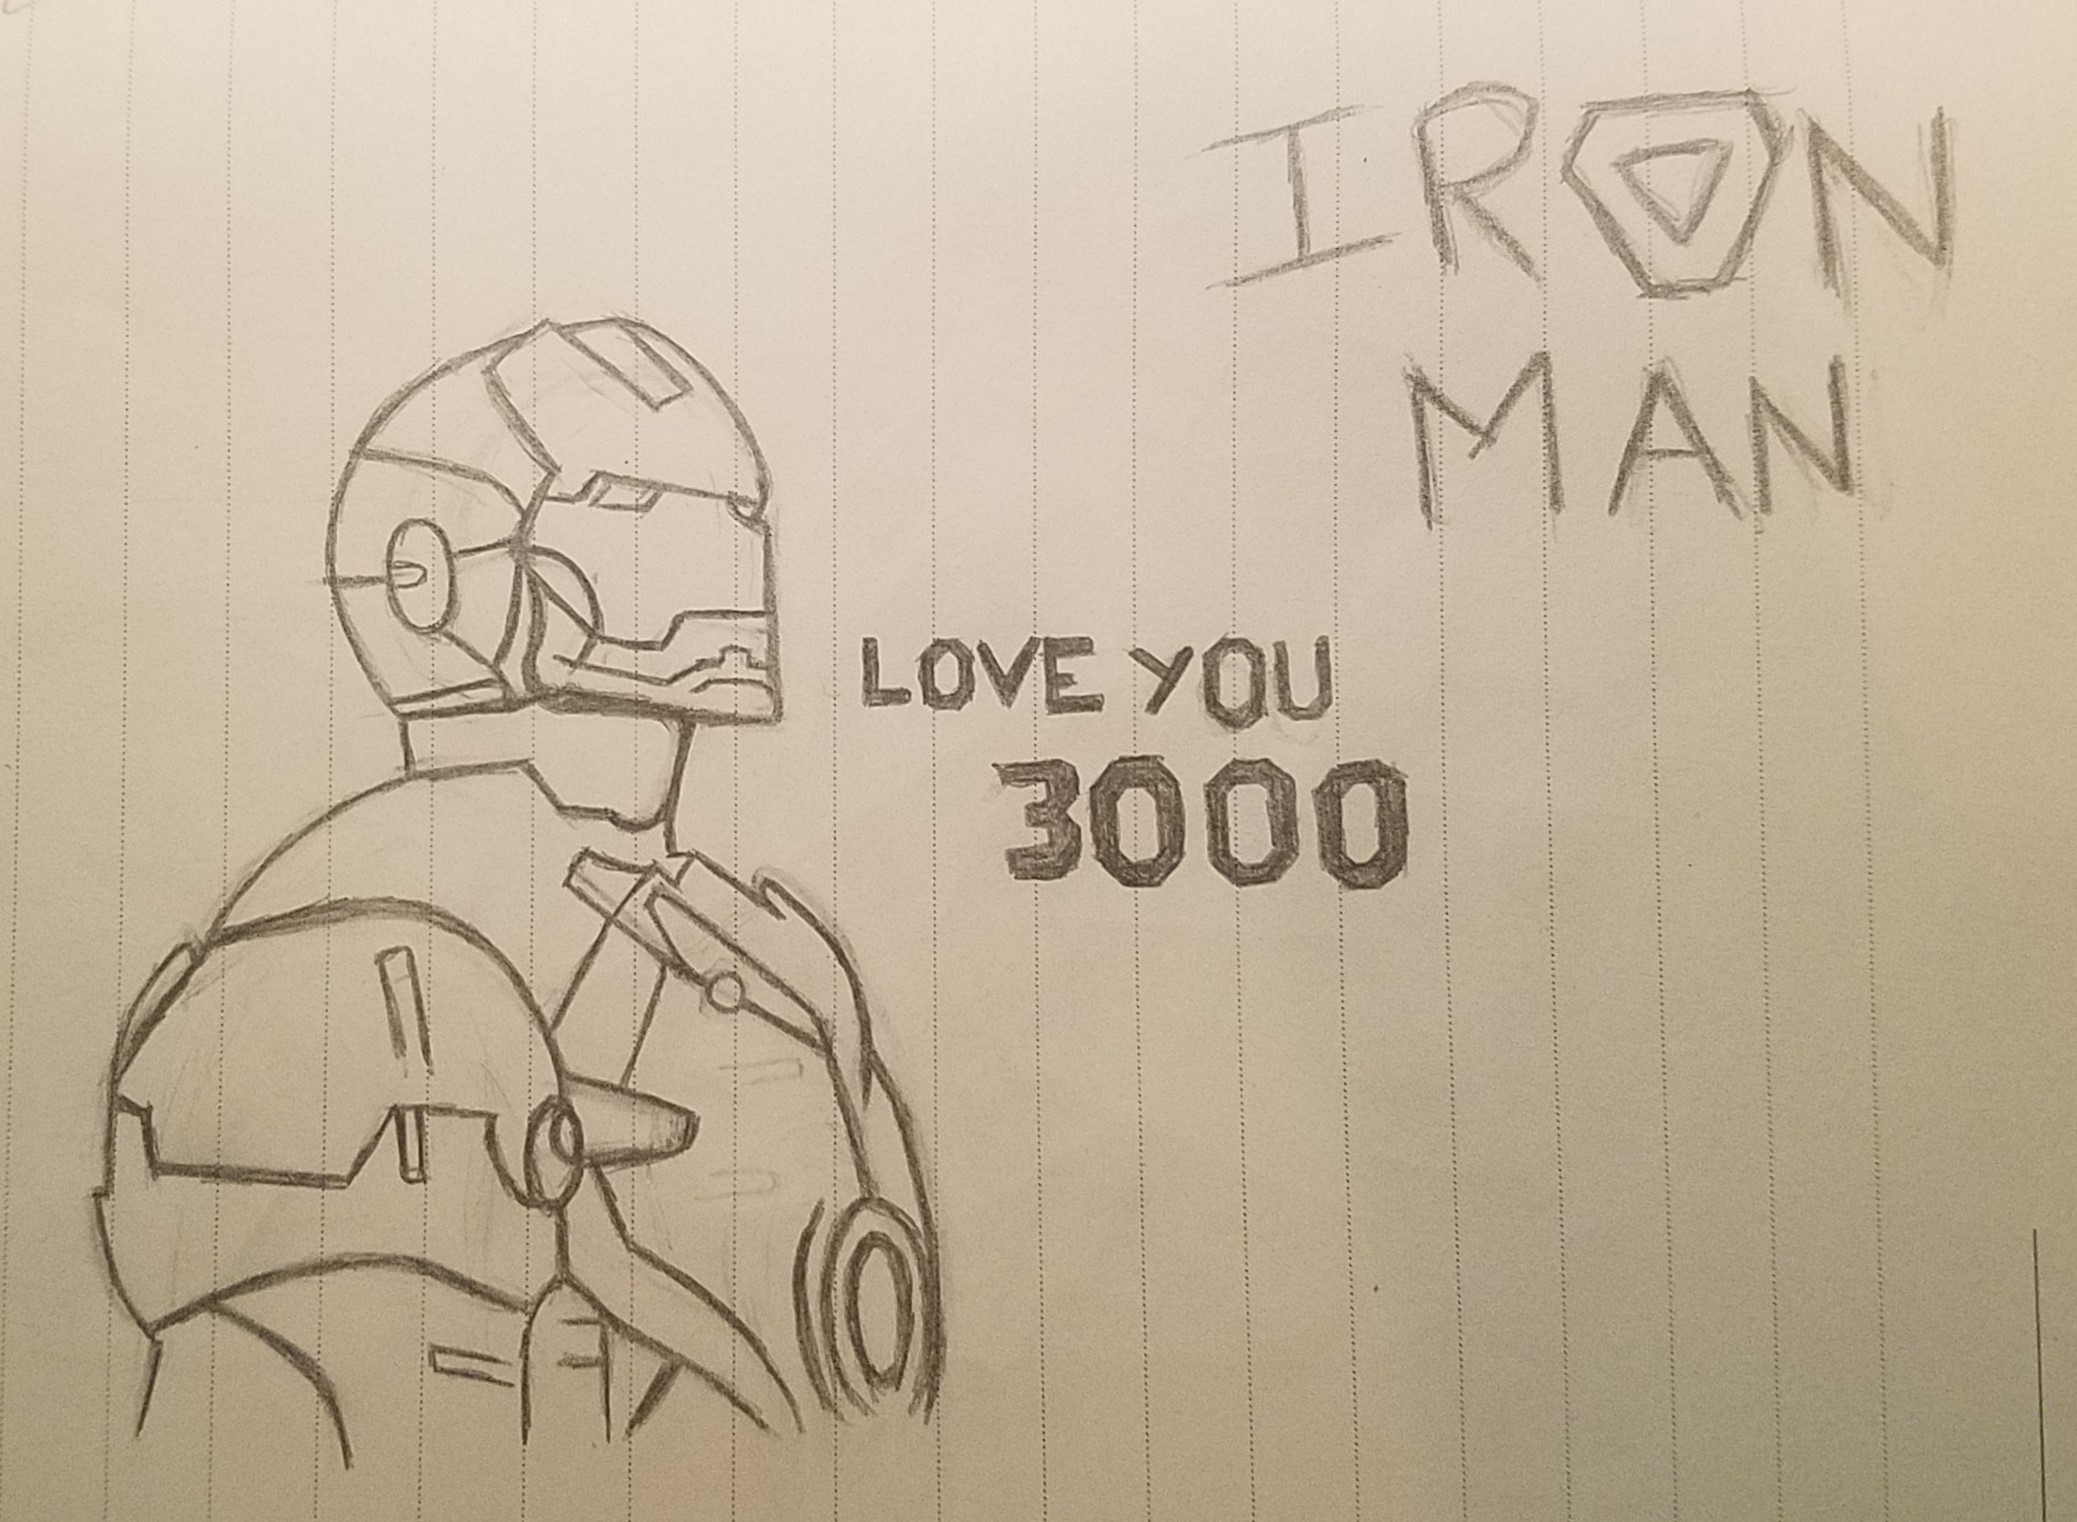 IRON
MAN
LOVE YOU
3000